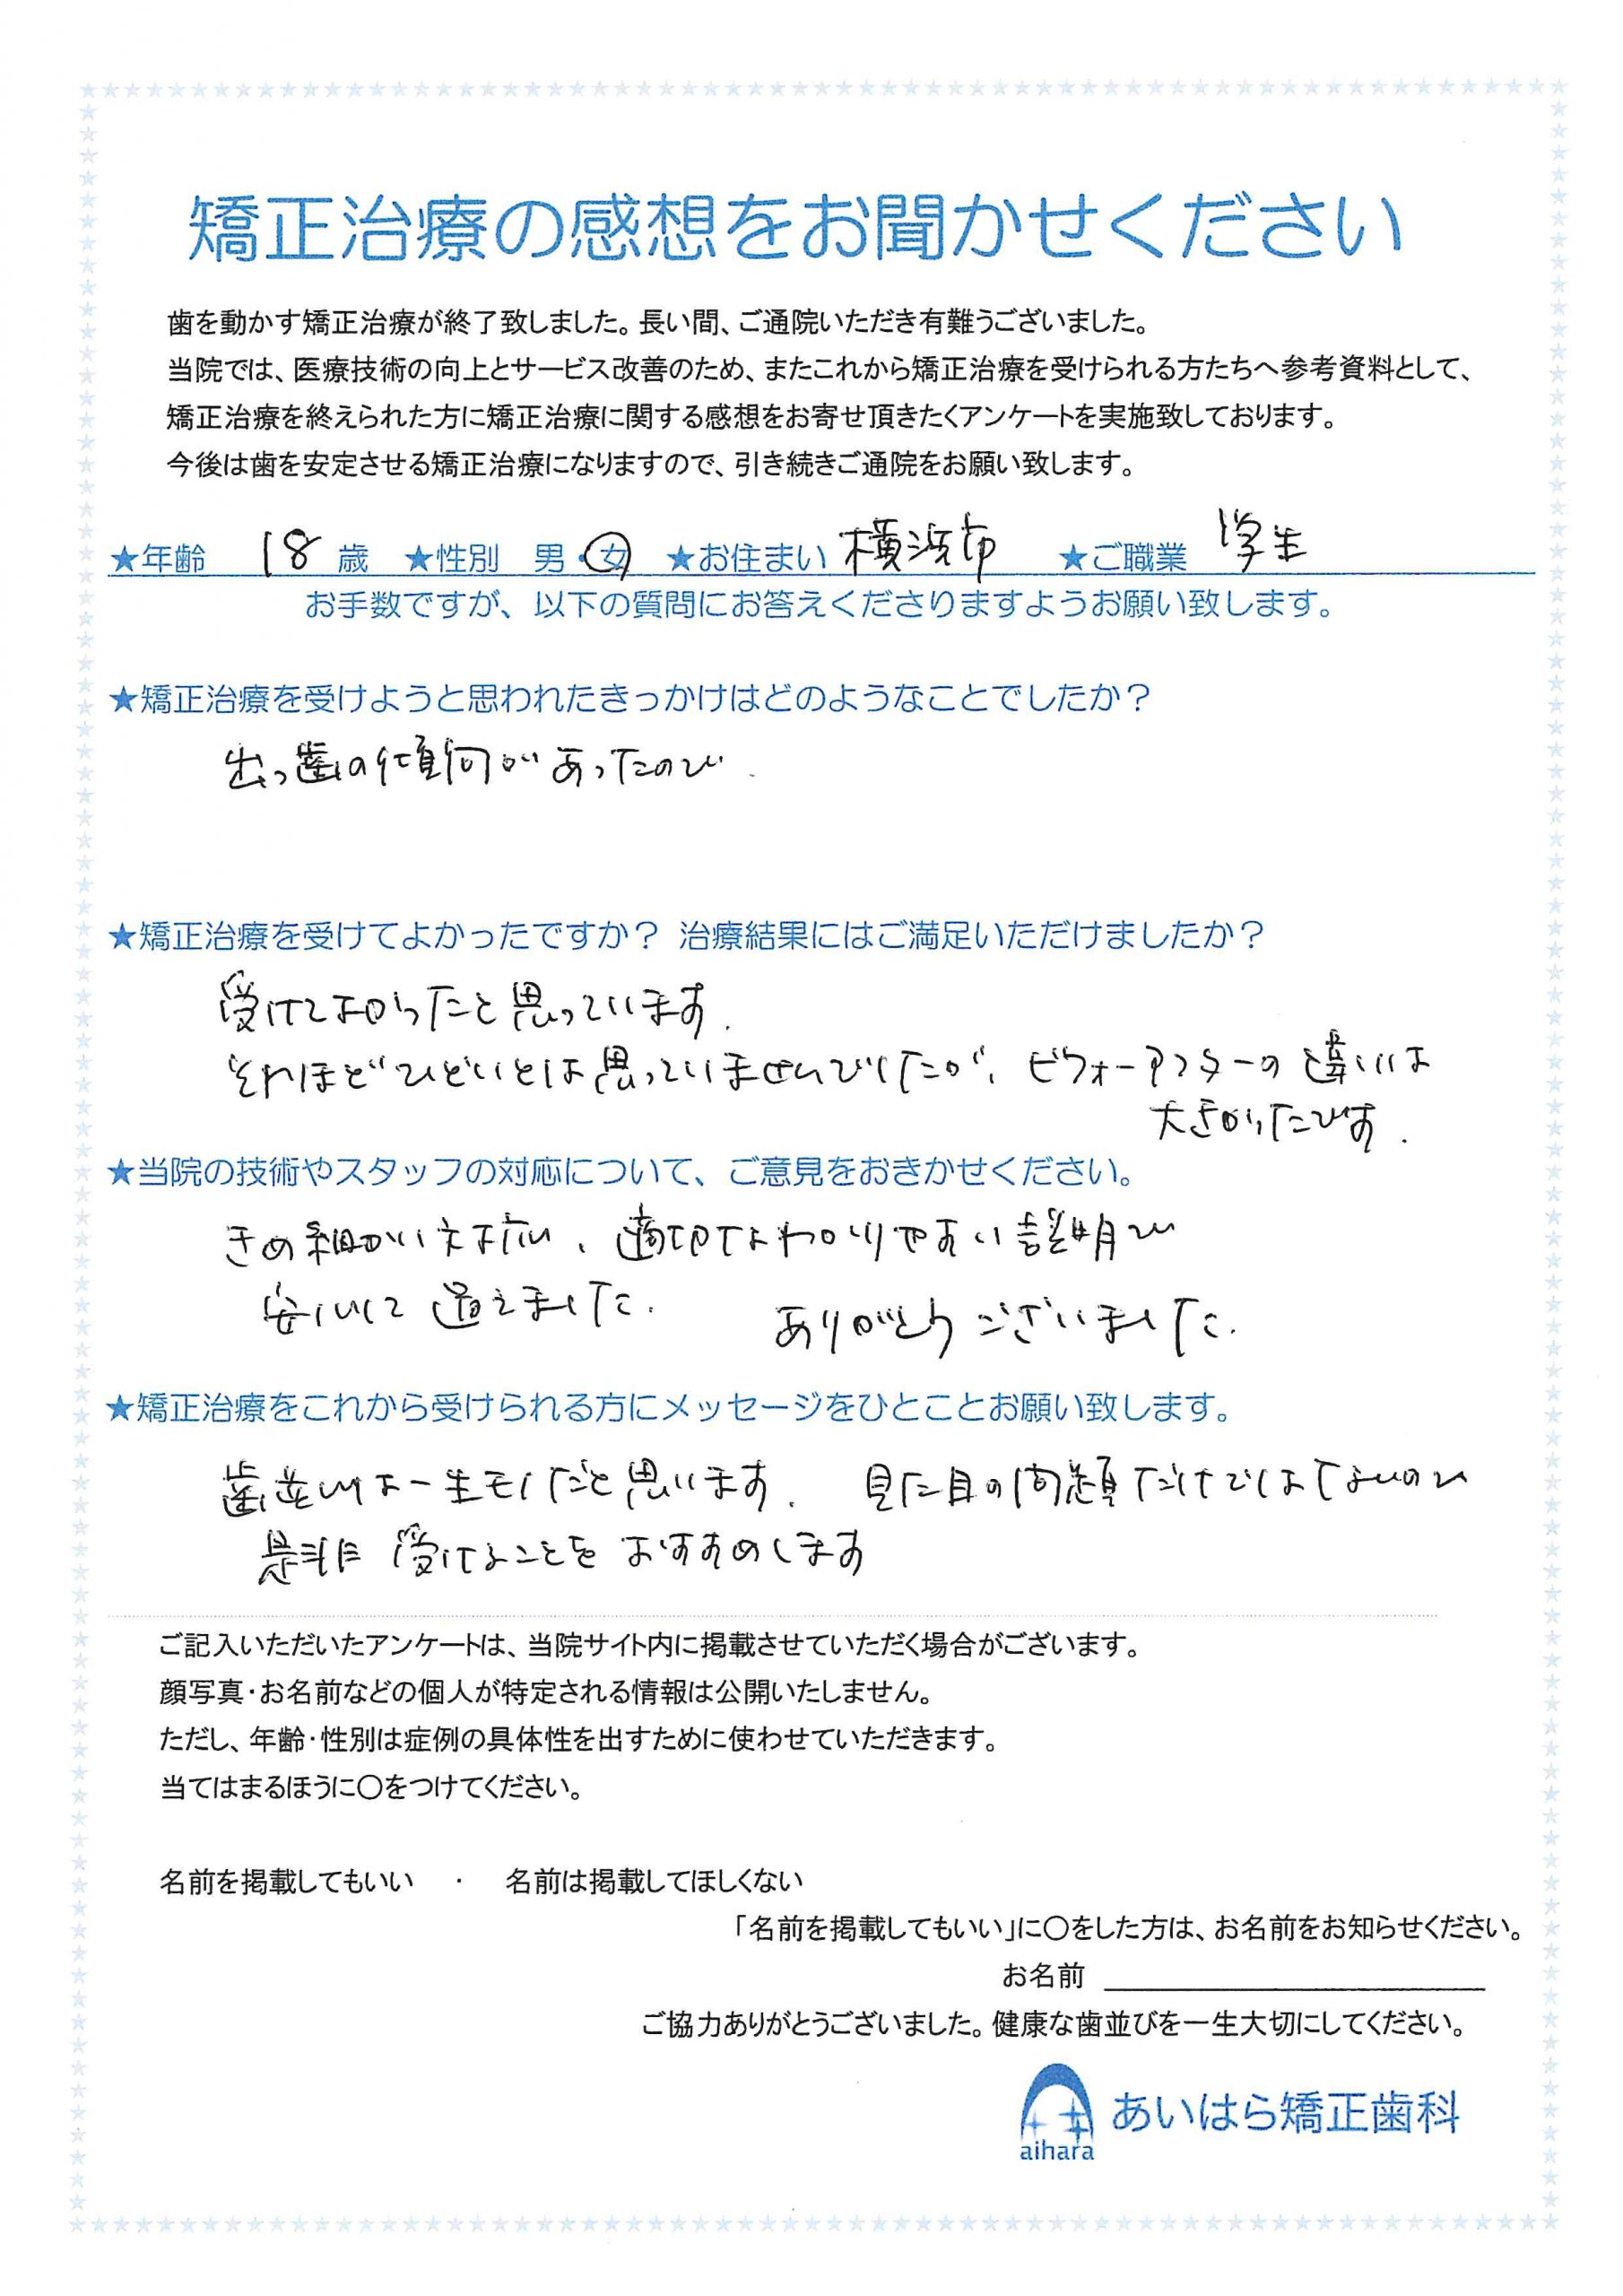 矯正治療の感想をお聞かせください
歯を動かす矯正治療が終了致しました。長い間、ご通院いただき有難うございました。
当院では、医療技術の向上とサービス改善のため、またこれから矯正治療を受けられる方たちへ参考資料として、
矯正治療を終えられた方に矯正治療に関する感想をお寄せ頂きたくアンケートを実施致しております。
今後は歯を安定させる矯正治療になりますので、引き続きご通院をお願い致します。
★年齢 18 歳 ★性別 男・女 ★お住まい 横浜市 ★ご職業 学生
お手数ですが、以下の質問にお答えくださりますようお願い致します。
★矯正治療を受けようと思われたきっかけはどのようなことでしたか？
出っ歯の傾向があったので.
★矯正治療を受けてよかったですか？ 治療結果にはご満足いただけましたか？
受けてよかったと思っています.
それほどひどいとは思っていませんでしたが、ビフォーアフターの違いは
大きかったです.
★当院の技術やスタッフの対応について、ご意見をおきかせください。
きめ細かい対応、適切なわかりやすい説明で
安心して通えました. ありがとうございました.
★矯正治療をこれから受けられる方にメッセージをひとことお願い致します。
歯並びは一生モノだと思います. 見た目の問題だけではないので
是非受けることをおすすめします
ご記入いただいたアンケートは、当院サイト内に掲載させていただく場合がございます。
顔写真・お名前などの個人が特定される情報は公開いたしません。
ただし、年齢・性別は症例の具体性を出すために使わせていただきます。
当てはまるほうに〇をつけてください。
名前を掲載してもいい ・ 名前は掲載してほしくない
「名前を掲載してもいい」に〇をした方は、お名前をお知らせください。
お名前
ご協力ありがとうございました。健康な歯並びを一生大切にしてください。
aihara あいはら矯正歯科